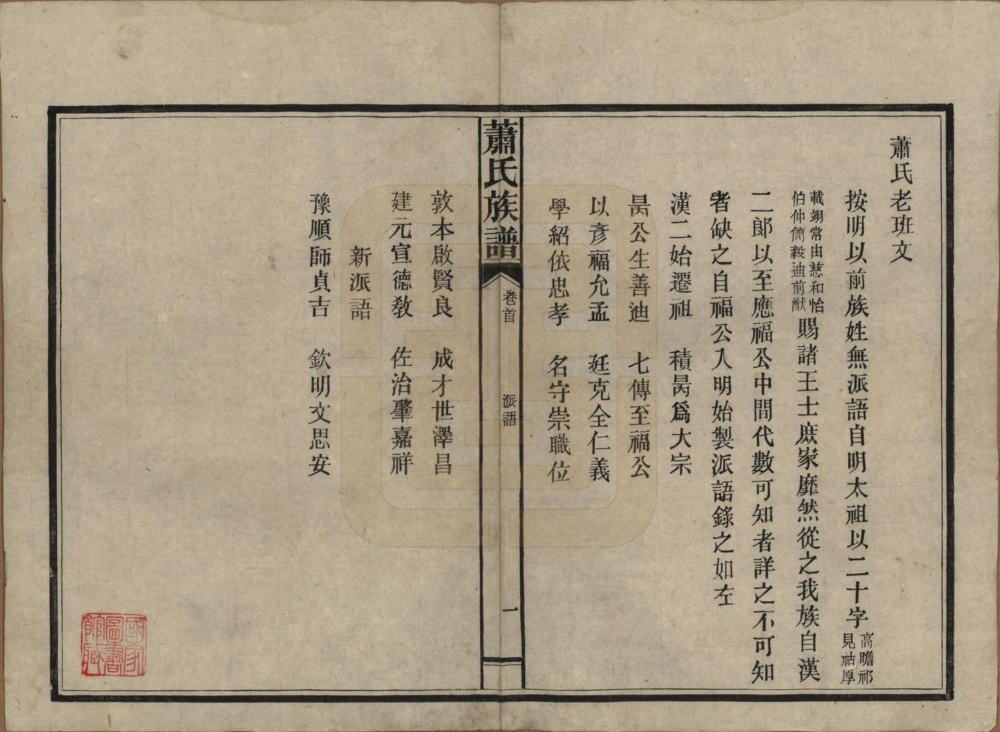 蕭氏老班文
按明以前族姓無派語自明太祖以二十字高瞻祁見祐厚
載翊常由慈和怡伯仲簡毅迪前猷賜諸王士庶家靡然從之我族自漢
二郎以至應福公中間代數可知者詳之不可知
者缺之自福公入明始製派語錄之如左
漢二始遷祖　積昺爲大宗
昺公生善迪　七傳至福公
以彥福允孟　廷克全仁義
學紹依忠孝　名守崇職位
蕭氏族譜　卷首　派語　一
敦本啟賢良　成才世澤昌
建元宣德教　佐治肇嘉祥
新派語
豫順師貞吉　欽明文思安